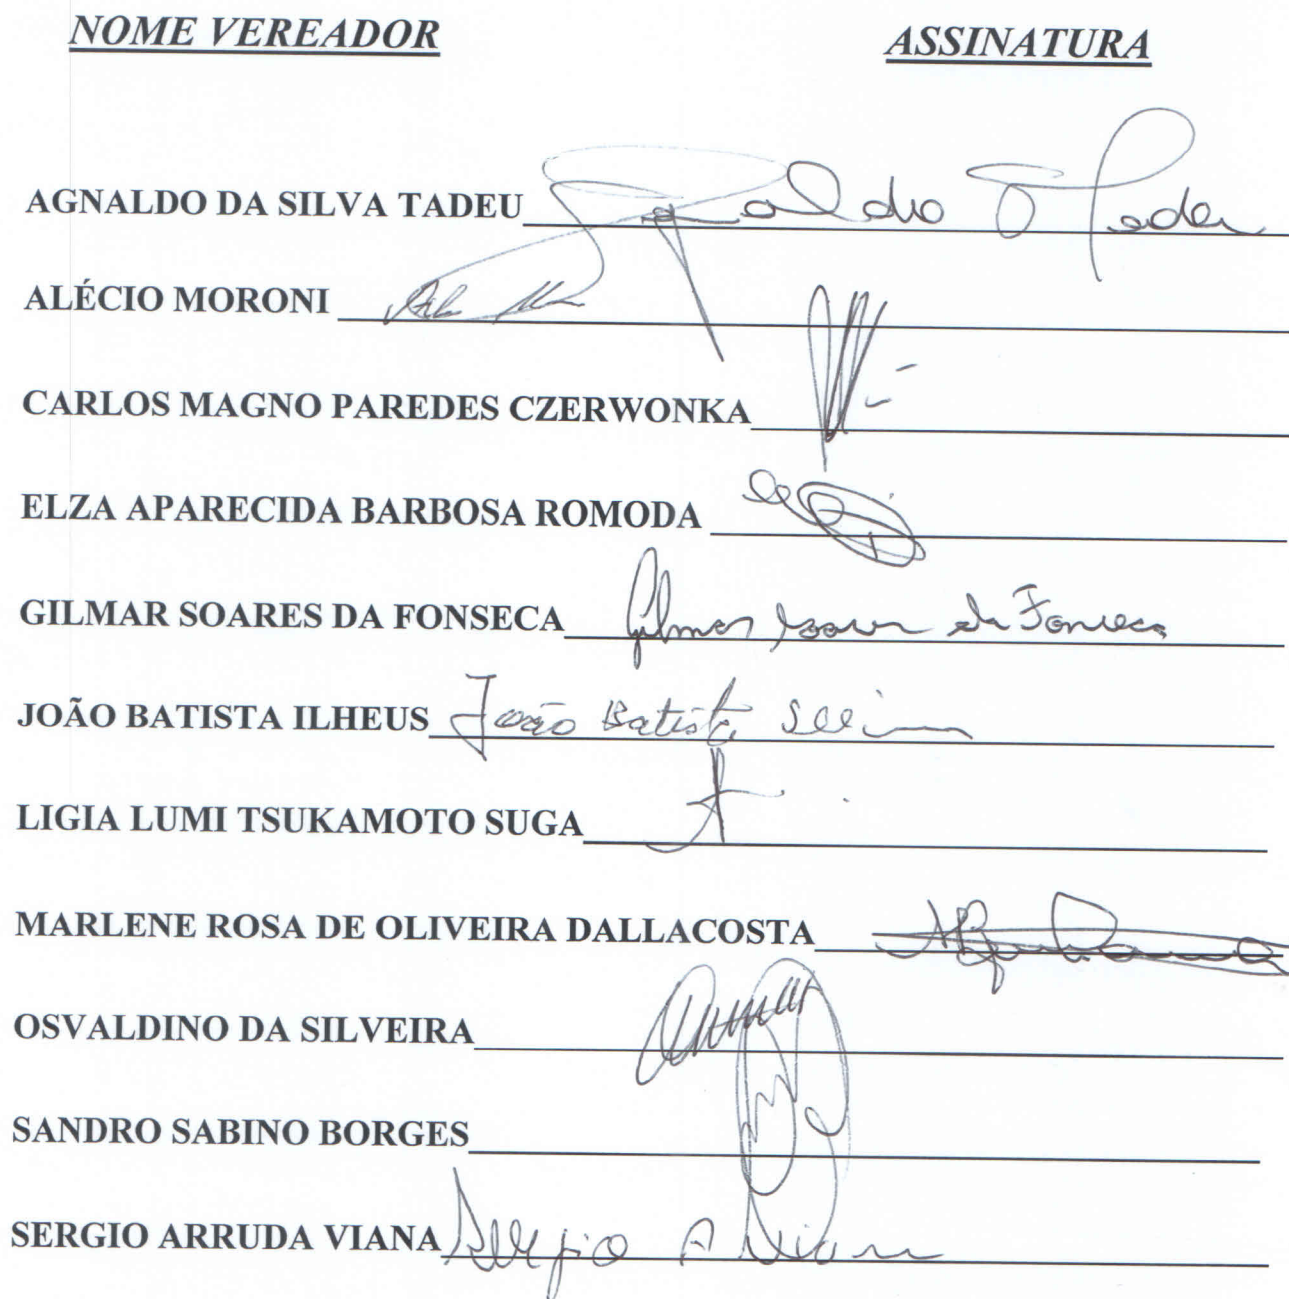 NOME VEREADOR ASSINATURA
AGNALDO DA SILVA TADEU Agnaldo Tadeu
ALÉCIO MORONI
CARLOS MAGNO PAREDES CZERWONKA
ELZA APARECIDA BARBOSA ROMODA
GILMAR SOARES DA FONSECA Gilmar Soares da Fonseca
JOÃO BATISTA ILHEUS João Batista
LIGIA LUMI TSUKAMOTO SUGA
MARLENE ROSA DE OLIVEIRA DALLACOSTA
OSVALDINO DA SILVEIRA
SANDRO SABINO BORGES
SERGIO ARRUDA VIANA Sergio A Viana